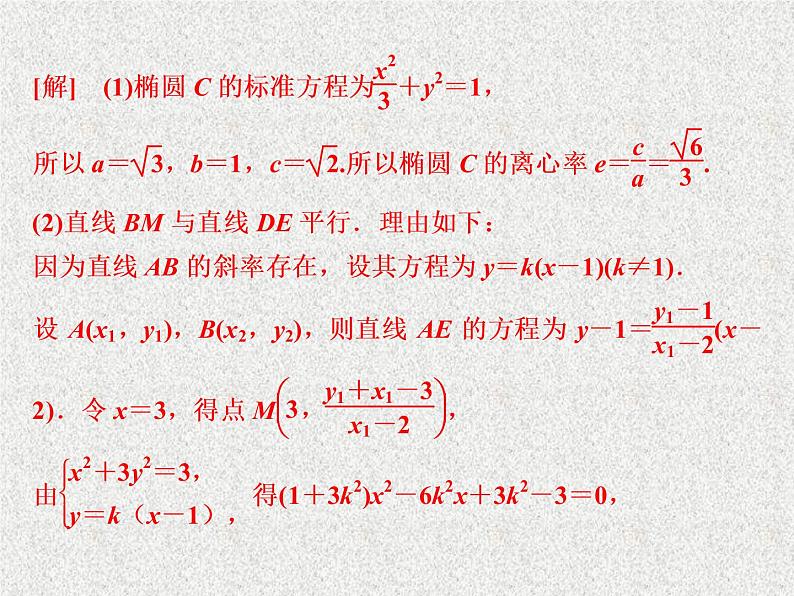 [解] (1)椭圆 C 的标准方程为x²/3+y²=1，
所以 a=√3，b=1，c=√2.所以椭圆 C 的离心率 e=c/a=√6/3.
(2)直线 BM 与直线 DE 平行．理由如下：
因为直线 AB 的斜率存在，设其方程为 y=k(x-1)(k≠1)．
设 A(x₁，y₁)，B(x₂，y₂)，则直线 AE 的方程为 y-1=(y₁-1)/(x₁-2)(x-
2)．令 x=3，得点 M(3，(y₁+x₁-3)/(x₁-2))，
由{x²+3y²=3，
y=k（x-1），得(1+3k²)x²-6k²x+3k²-3=0，